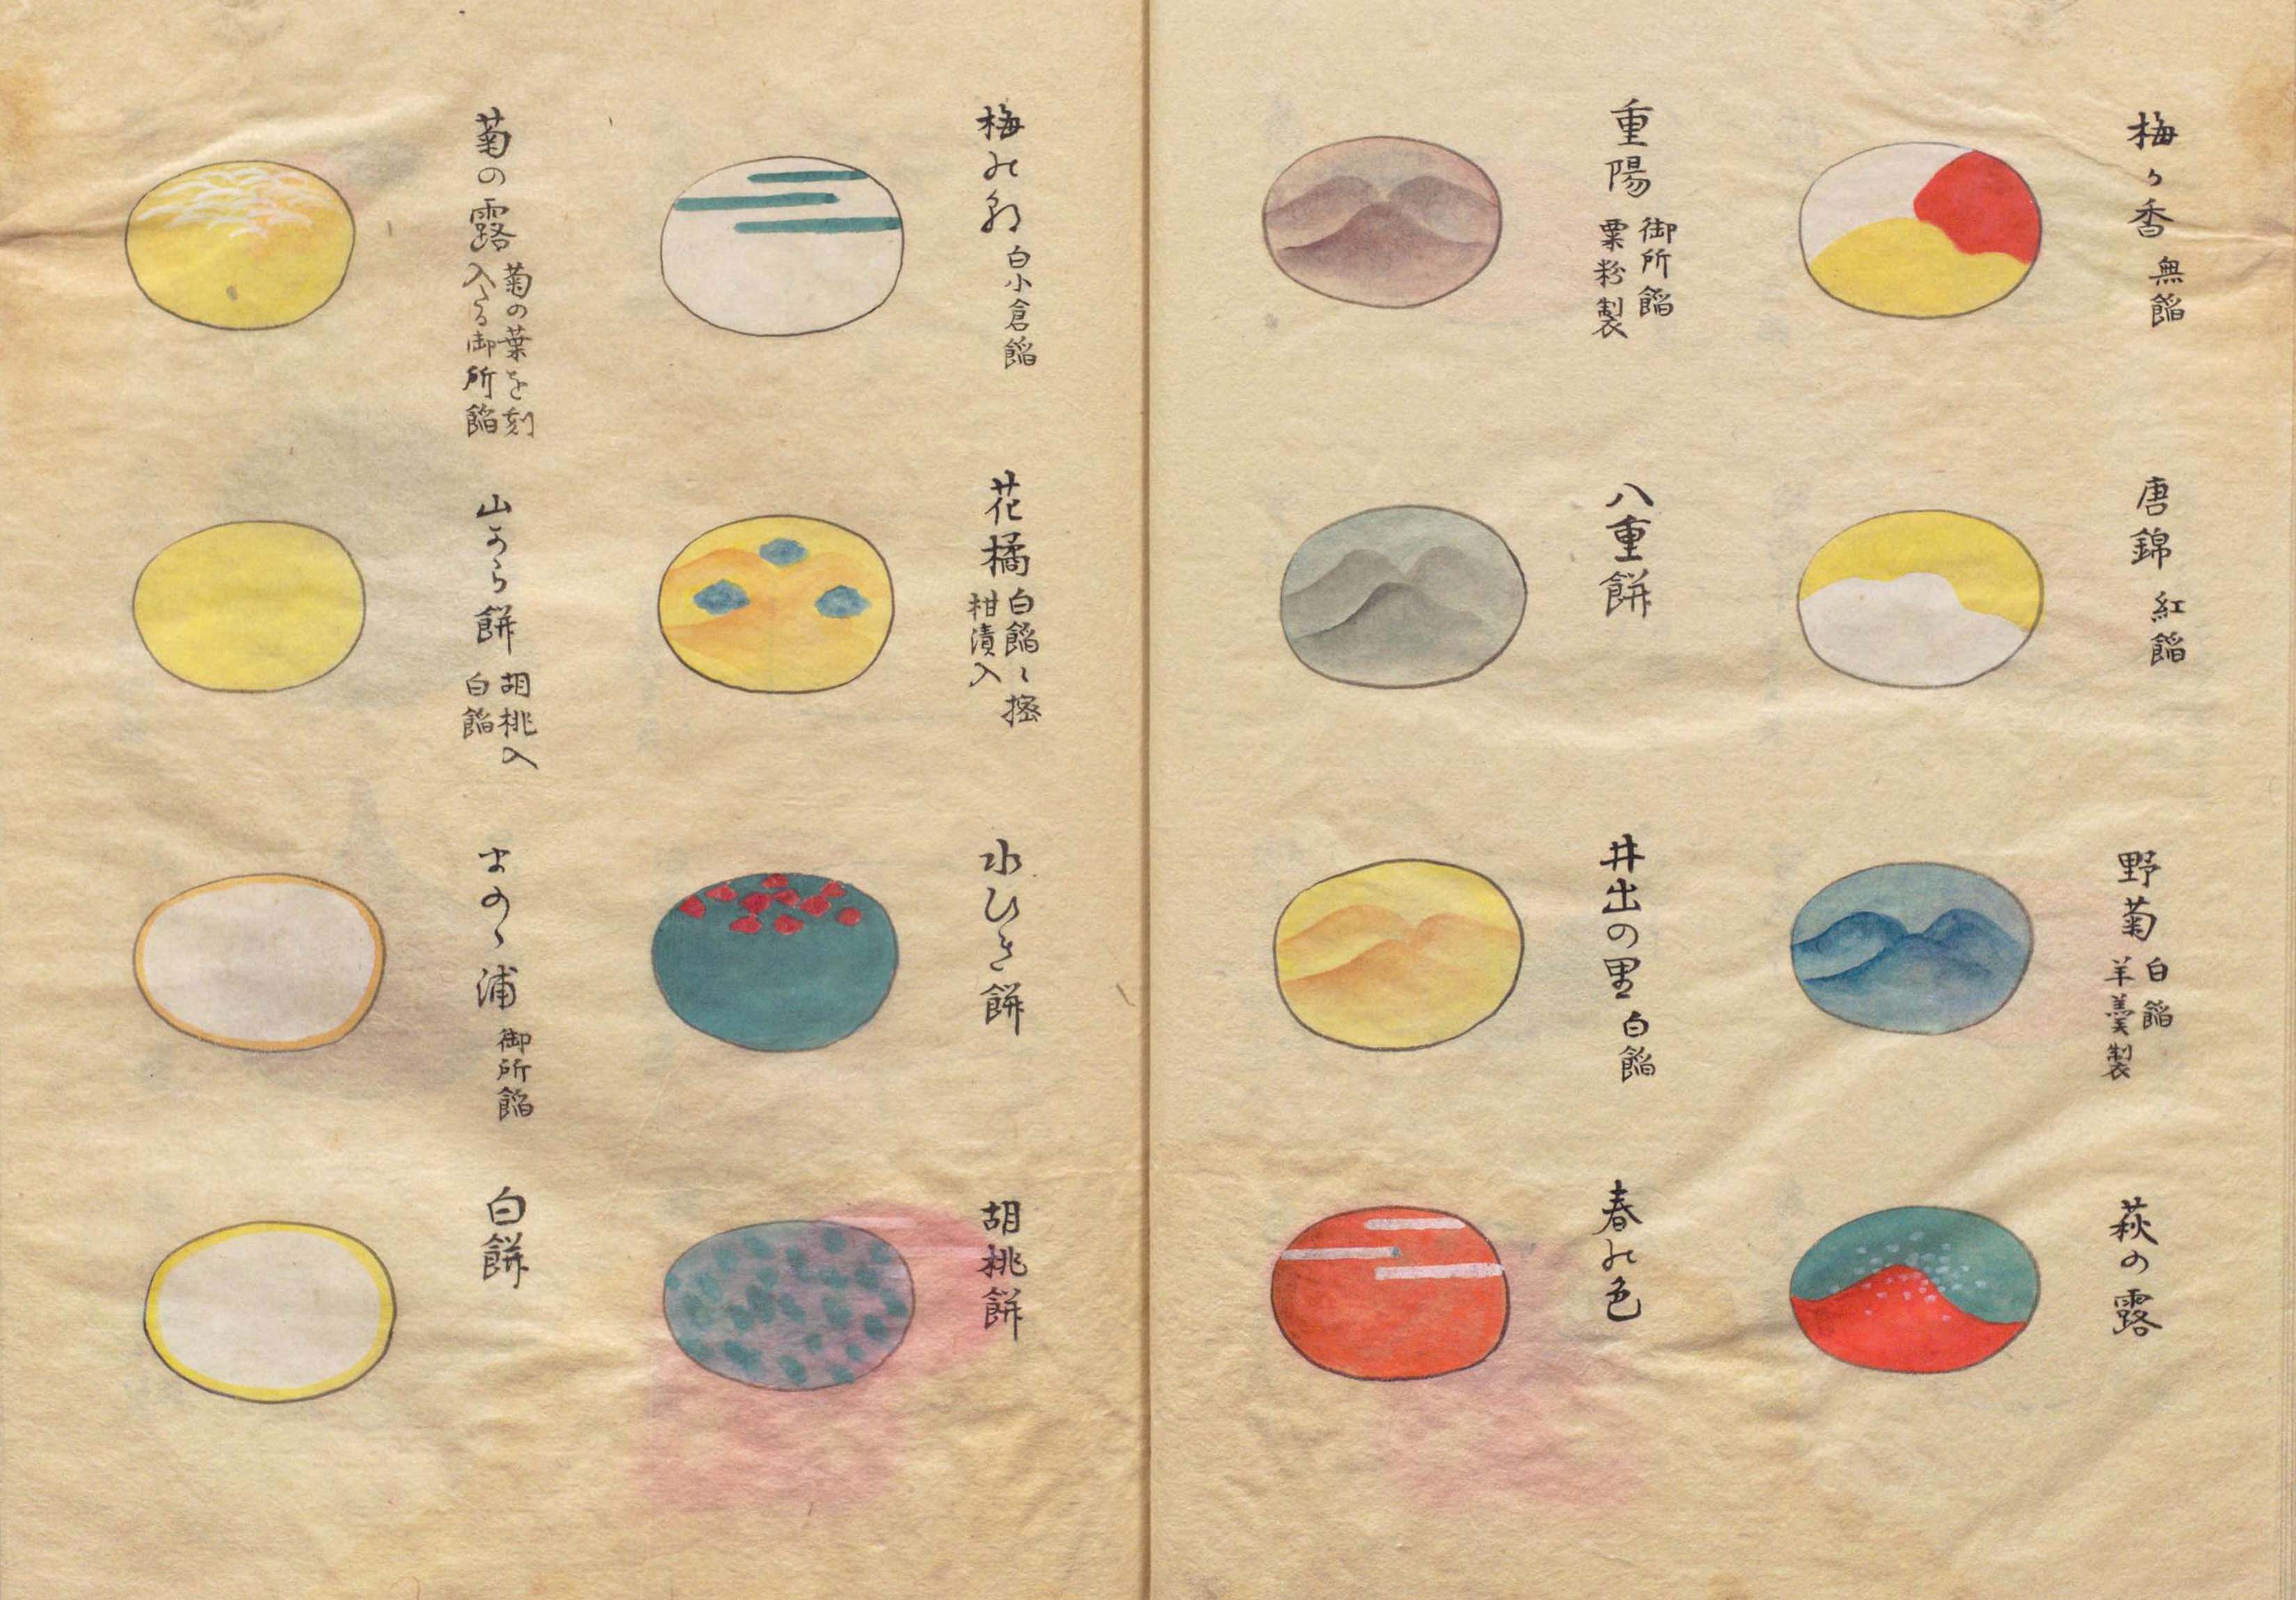 梅ヶ香
無餡
唐錦
紅餡
野菊
白餡
羊羹製
萩の露
重陽
御所餡
粟粉製
八重餅
井出の里
白餡
春の色
梅の
白小倉餡
花橘
白餡ニ蜜
柑漬入
水ひき餅
胡桃餅
菊の露
菊の葉を刻
入たる御所餡
山から餅
胡桃入
白餡
まのゝ浦
御所餡
白餅